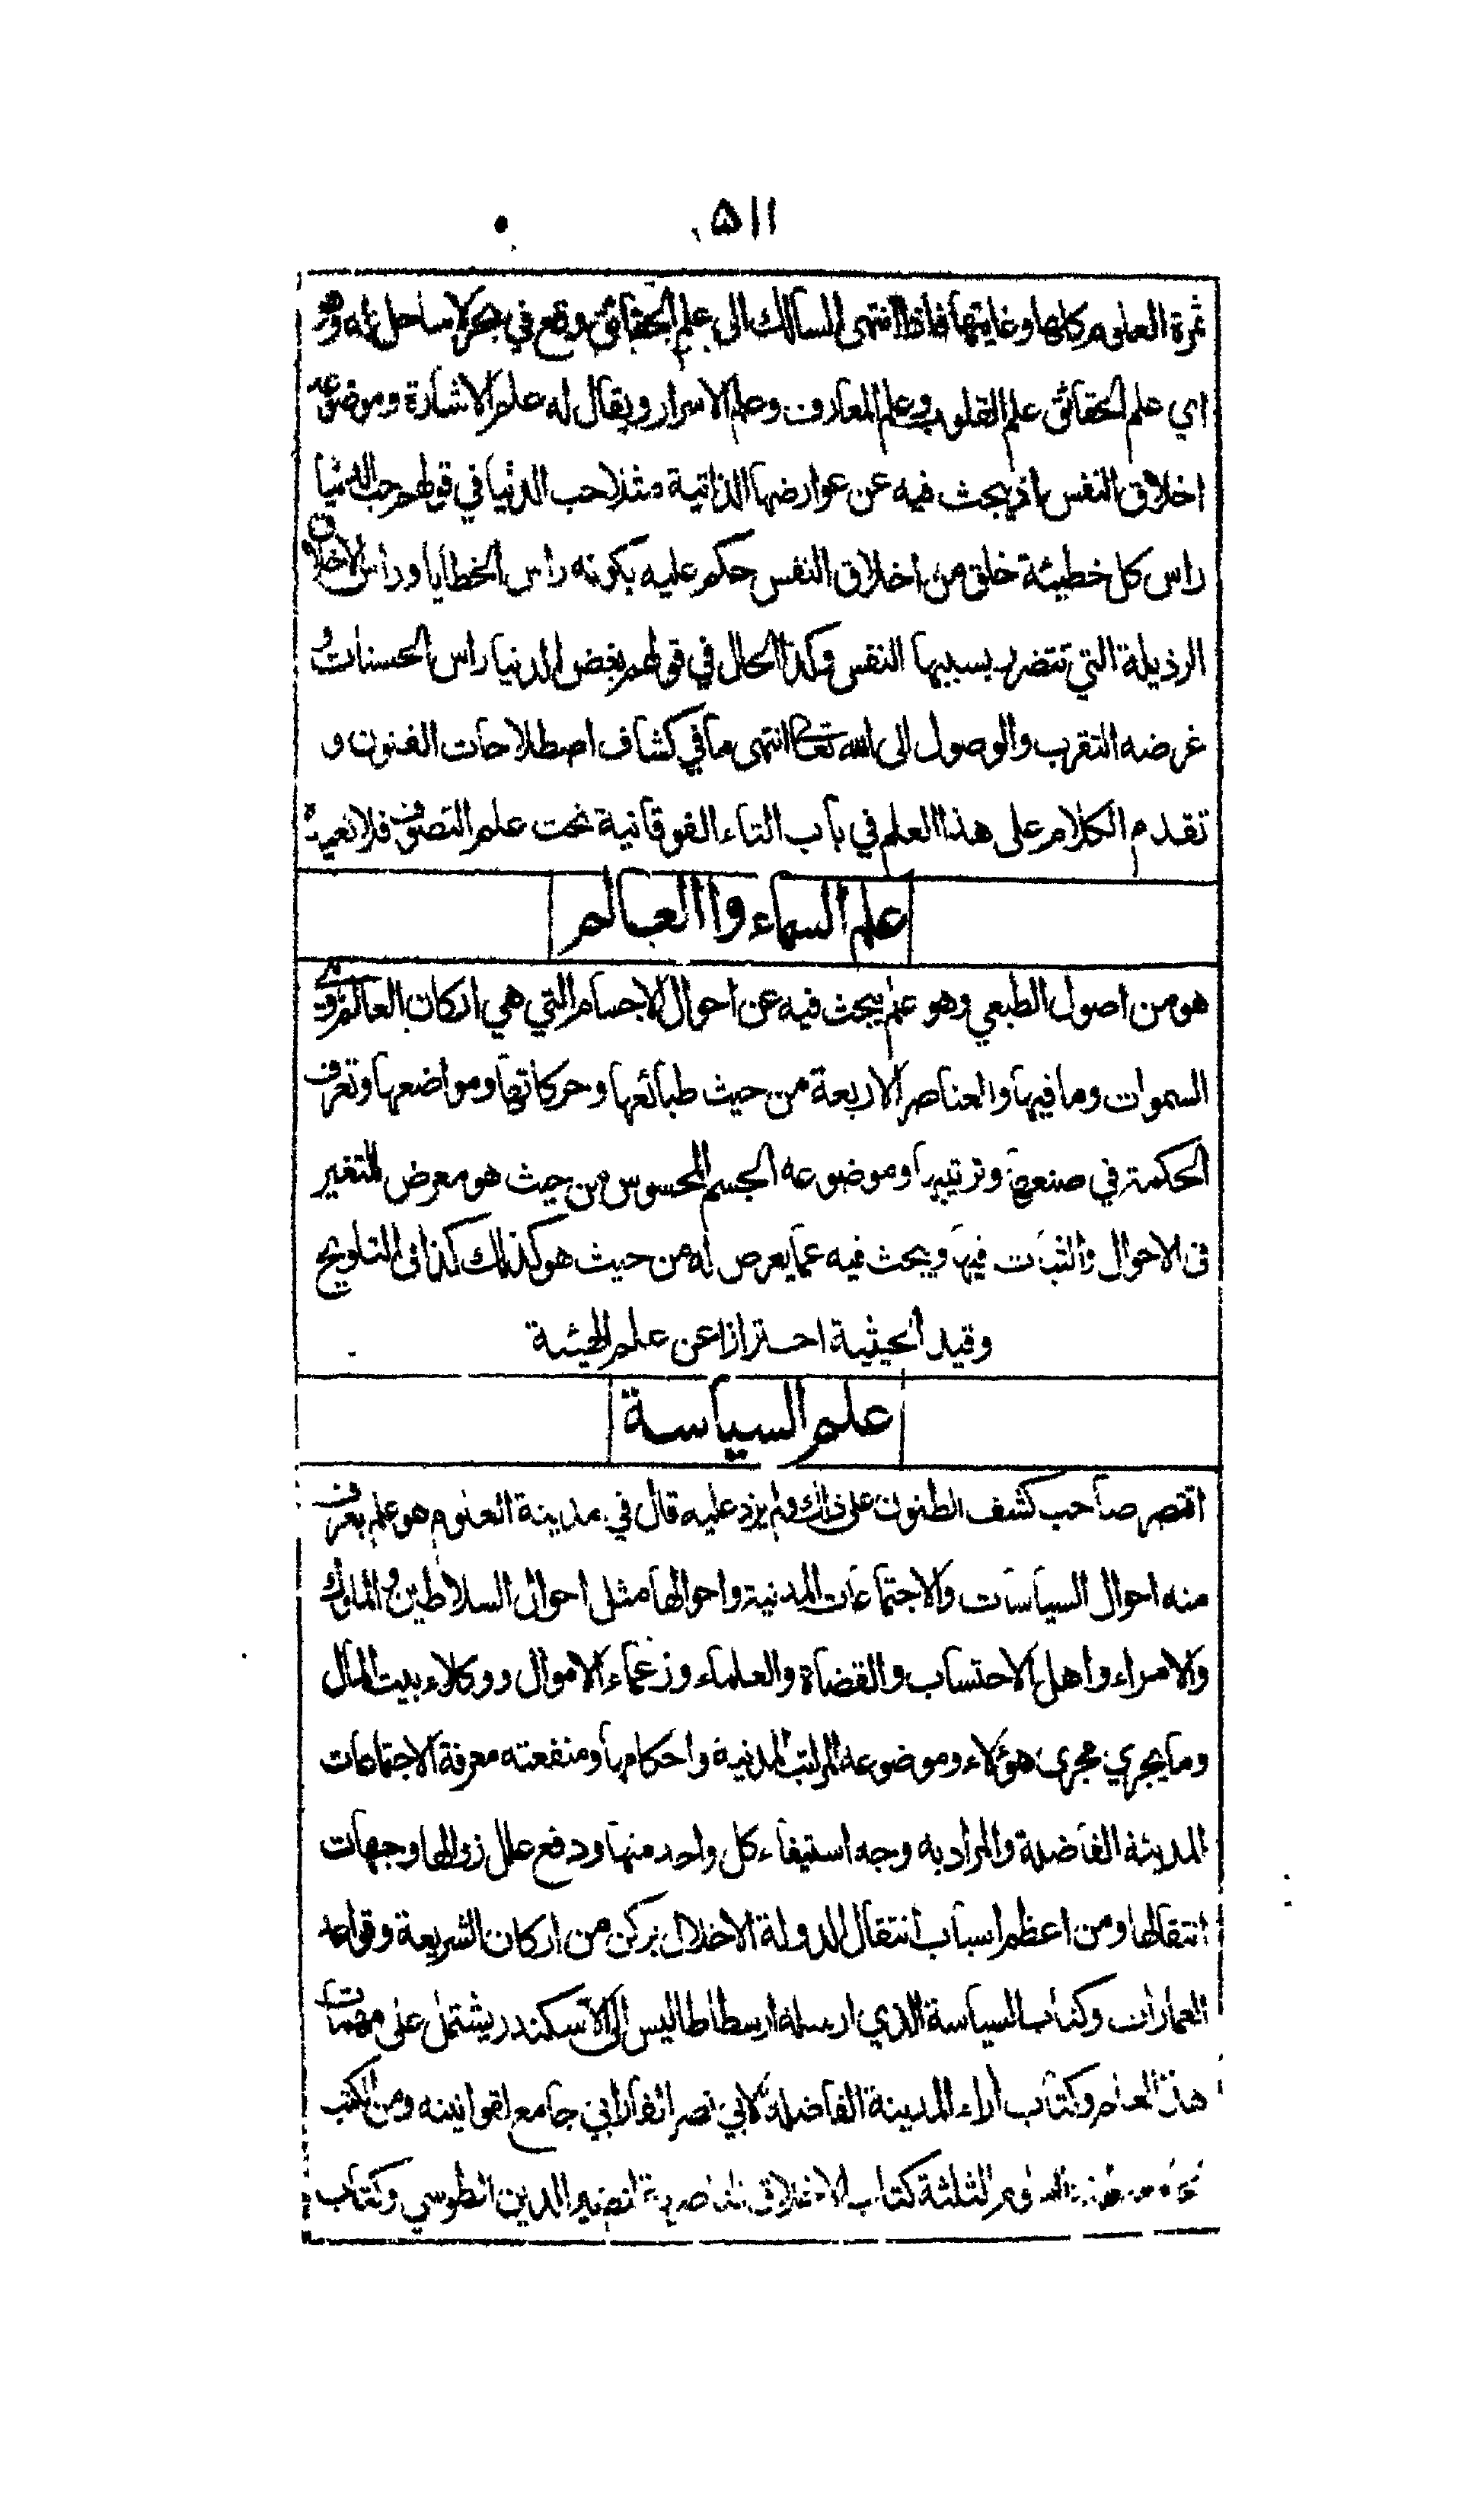 ٥١١
ثمرة العلوم كلها وغايتها فاذا انتهى السالك الى علم الحقائق وقع في بحر لا ساحل له وهو
اي علم الحقائق علم القلوب وعلم المعارف وعلم الاسرار ويقال له علم الاشارة وموضوعه
اخلاق النفس اذ يبحث فيه عن عوارضها الذاتية مثلا حب الدنيا في قولهم حب الدنيا
راس كل خطيئة خلق من اخلاق النفس حكم عليه بكونه راس الخطايا وراس الاخلاق
الرذيلة التي تتضرر بسببها النفس وكذا الحال في قولهم بغض الدنيا راس الحسنات و
غرضه التقرب والوصول الى الله تعالى انتهى ما في كشاف اصطلاحات الفنون و
تقدم الكلام على هذا العلم في باب التاء الفوقانية تحت علم التصوف فلا نعيده
علم السماء والعالم
هو من اصول الطبعي وهو علم يبحث فيه عن احوال الاجسام التي هي اركان العالم وهي
السموات وما فيها والعناصر الاربعة من حيث طبائعها وحركاتها ومواضعها وتعرف
الحكمة في صنعها وترتيبها وموضوعه الجسم المحسوس من حيث هو معرض للتغير
في الاحوال والثبات فيها ويبحث فيه عما يعرض له من حيث هو كذلك كذا في التلويح
وقيد الحيثية احترازا عن علم الهيئة
علم السياسة
اقتصر صاحب كشف الظنون على ذلك ولم يزد عليه قال في مدينة العلوم هو علم يعرف
منه احوال السياسات والاجتماعات المدنية واحوالها مثل احوال السلاطين والملوك
والامراء واهل الاحتساب والقضاة والعلماء وزعماء الاموال ووكلاء بيت المال
وما يجري مجرى هؤلاء وموضوعه المراتب المدنية واحكامها ومنفعته معرفة الاجتماعات
المدنية الفاضلة والمراد به وجه استيفاء كل واحد منها ودفع علل زوالها وجهات
انتقالها ومن اعظم اسباب انتقال الدولة الاخلال بركن من اركان الشريعة وقواعد
العمارات وكتاب السياسة الذي ارسله ارسطاطاليس الى الاسكندر يشتمل على مهمات
هذا العلم وكتاب اراء المدينة الفاضلة لابي نصر الفارابي جامع لقوانينه ومن الكتب
الثلثة كتاب الاخلاق الناصرية لنصير الدين الطوسي وكتاب